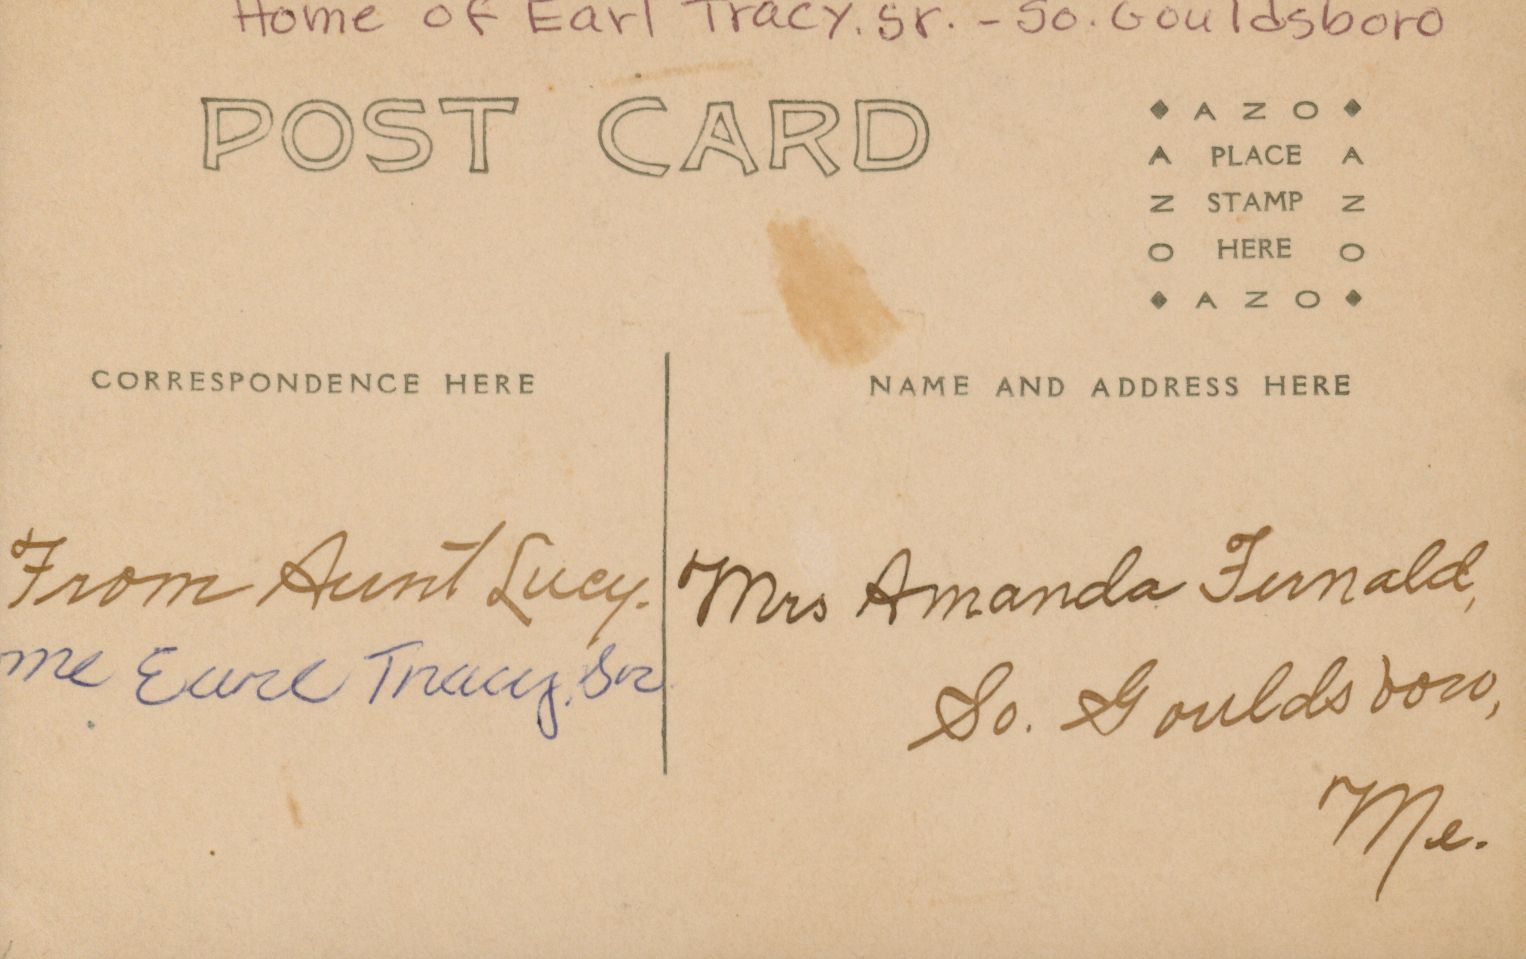 Home of Earl Tracy. Sr. - So. Gouldsboro
POST CARD
AZO
A PLACE A
N STAMP N
O HERE O
AZO
CORRESPONDENCE HERE
NAME AND ADDRESS HERE
From Aunt Lucy.
me Earl Tracy. Sr.
Mrs Amanda Fernald,
So. Gouldsboro,
Me.